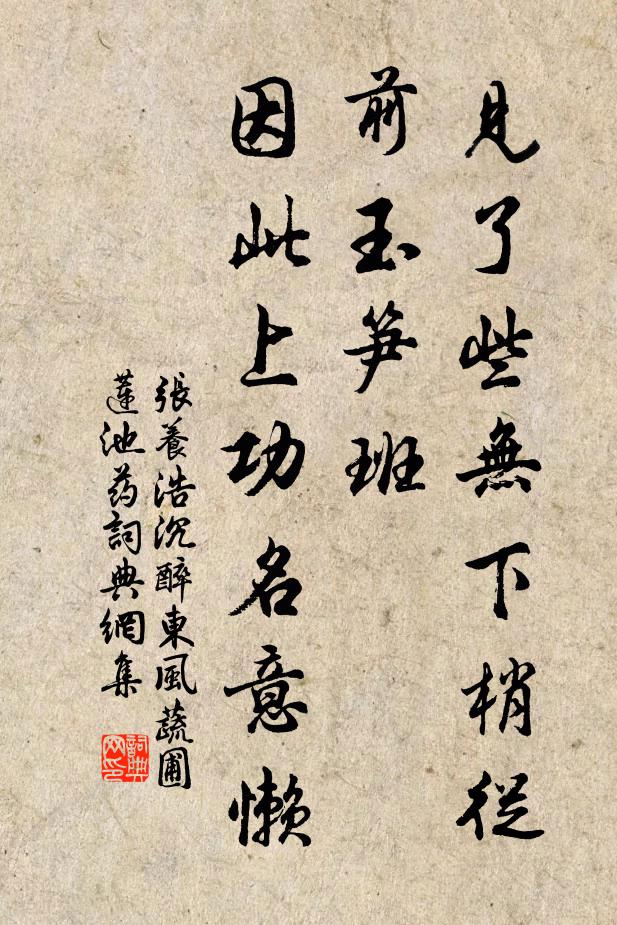 見了些無下梢從
前玉笋班
因此上功名意懒
張養浩沉醉東風蔬圃
蓮池药詞典網集
詞典
网印